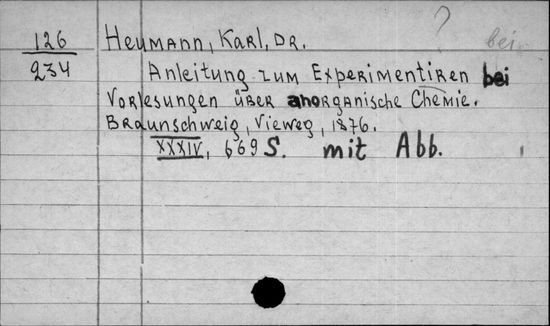 ?
126 Heumann, Karl, Dr. bei
234 Anleitung zum Experimentiren bei
Vorlesungen über anorganische Chemie.
Braunschweig, Vieweg, 1876.
XXXIV, 669 S. mit Abb.